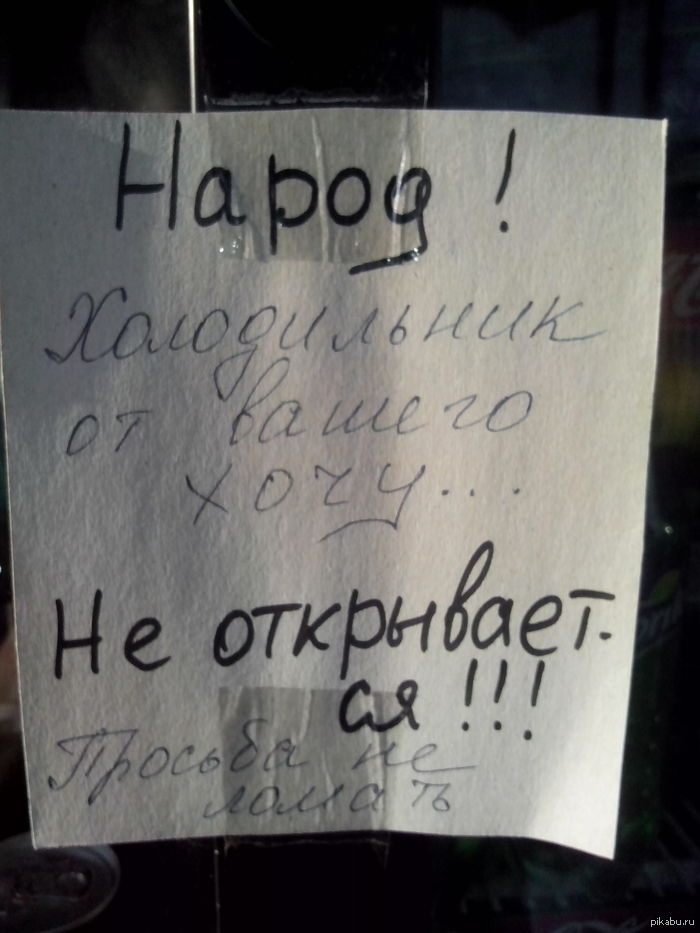 Народ!
Холодильник
от вашего
хочу...
Не открывает-
ся!!!
Просьба не
ломать
pikabu.ru